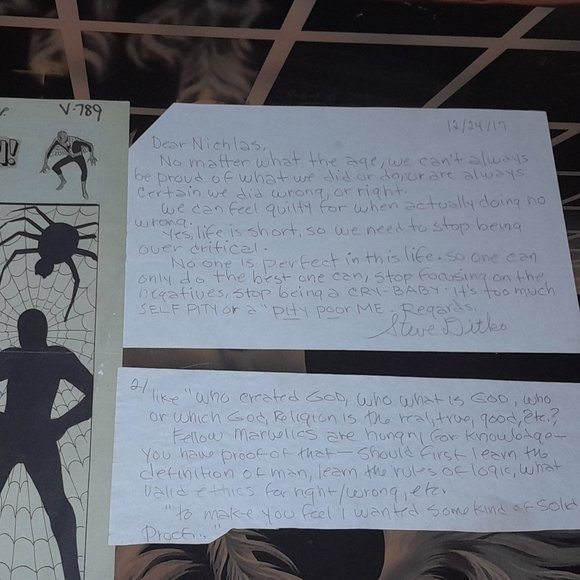 V-789
!
12/24/17
Dear Nichlas,
No matter what the age, we can't always
be proud of what we did or do, or are always
certain we did wrong, or right.
We can feel quilty for when actually doing no
wrong.
Yes, life is short, so we need to stop being
over critical.
No one is perfect in this life. so one can
only do the best one can, stop focusing on the
negatives, stop being a CRY-BABY. it's too much
SELF PITY or a "PITY POOR ME. Regards,
Steve Ditko
2/
like "who created GOD, who what is GOD, who
or which God, Religion is the real, true, good, etc?
Fellow Marvelics are hungry for knowledge—
you have proof of that— should first learn the
definition of man, learn the rules of logic, what
valid ethics for right/wrong, etc.
"to make you feel I wanted some kind of solid
Proof..."